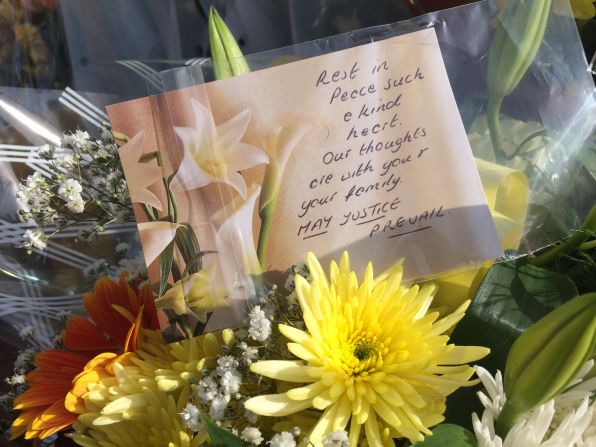 Rest in
Peace such
a kind
heart.
Our thoughts
are with you r
your family.
MAY JUSTICE
PREVAIL.